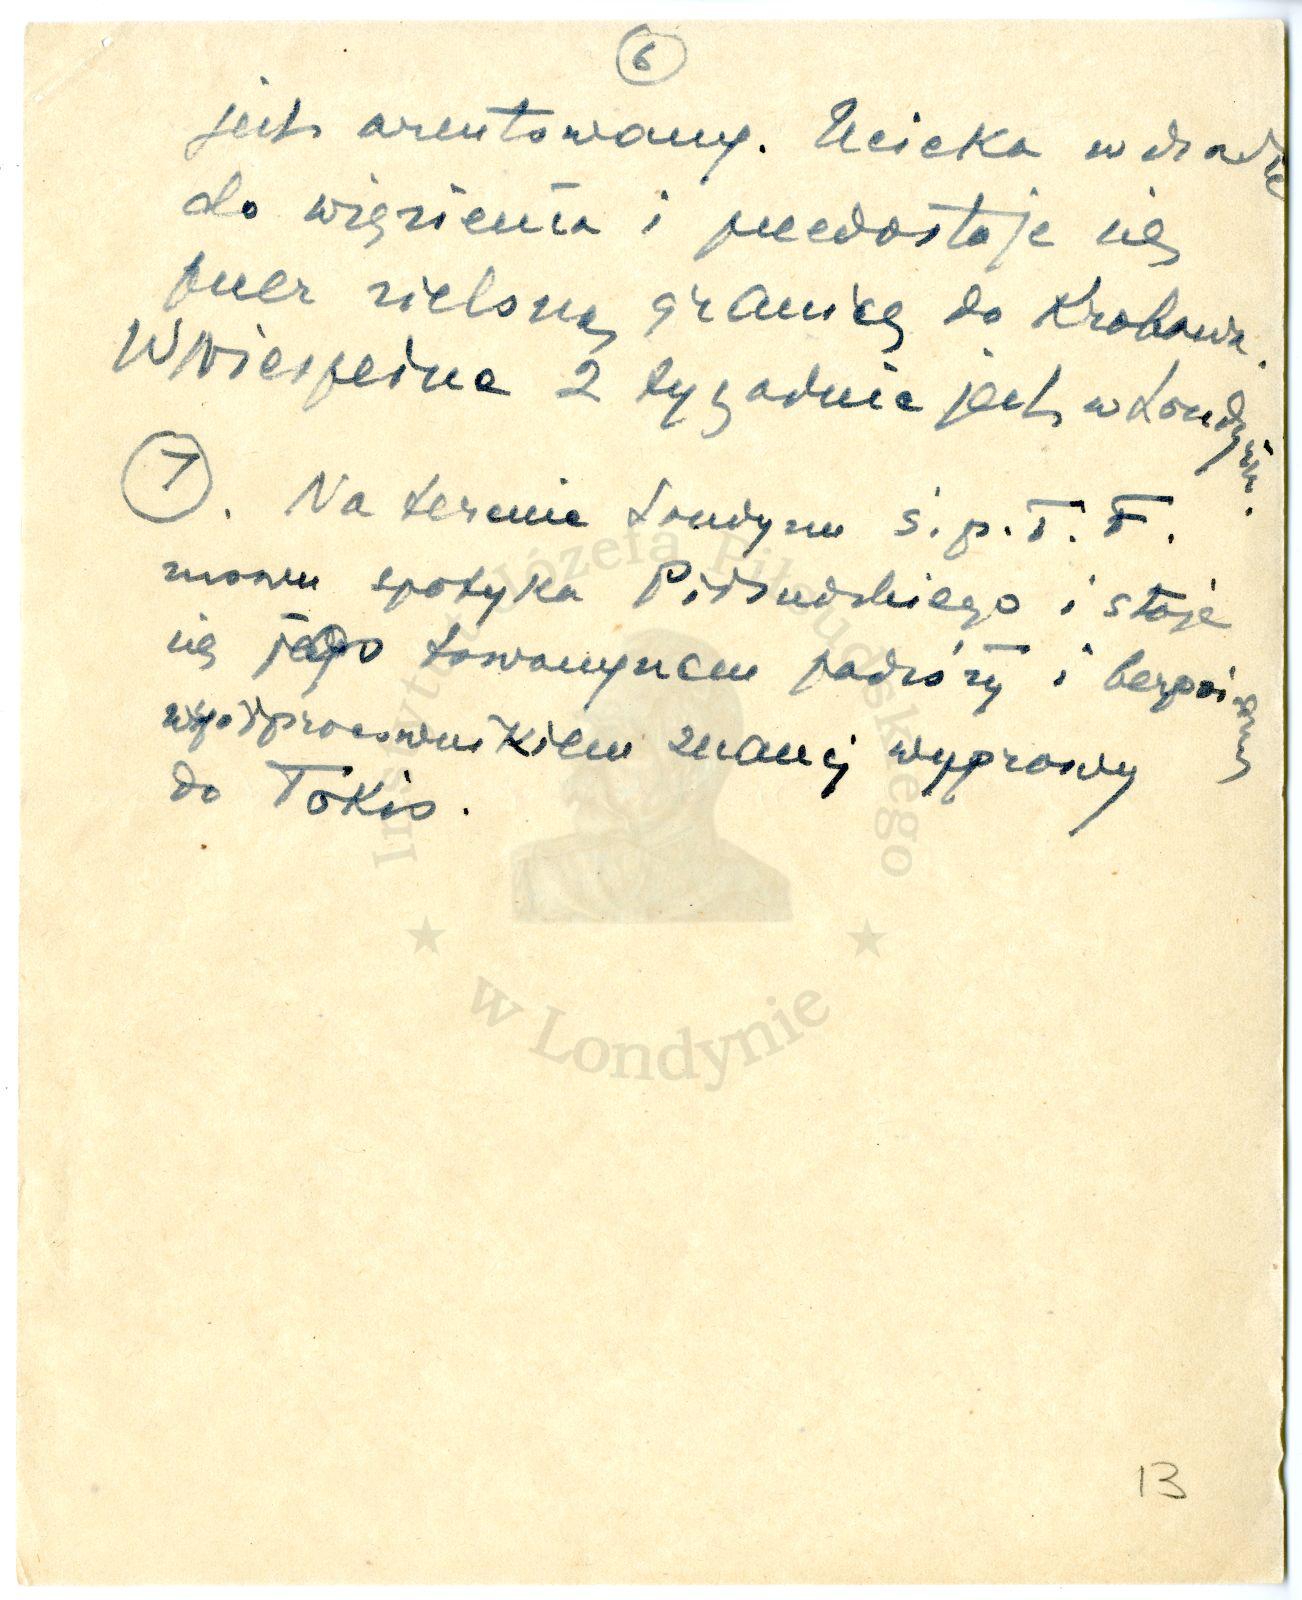 6
jest aresztowany. Ucieka w drodze
do więzienia i przedostaje się
przez zieloną granicę do Krakowa.
W niespełna 2 tygodnie jest w Londynie.
7. Na terenie Londynu ś.p. T. F.
znowu spotyka Piłsudskiego i staje
się jego towarzyszem podróży i bezpośr.
współpracownikiem znanej wyprawy
do Tokio.
Instytut Józefa Piłsudskiego
w Londynie
13